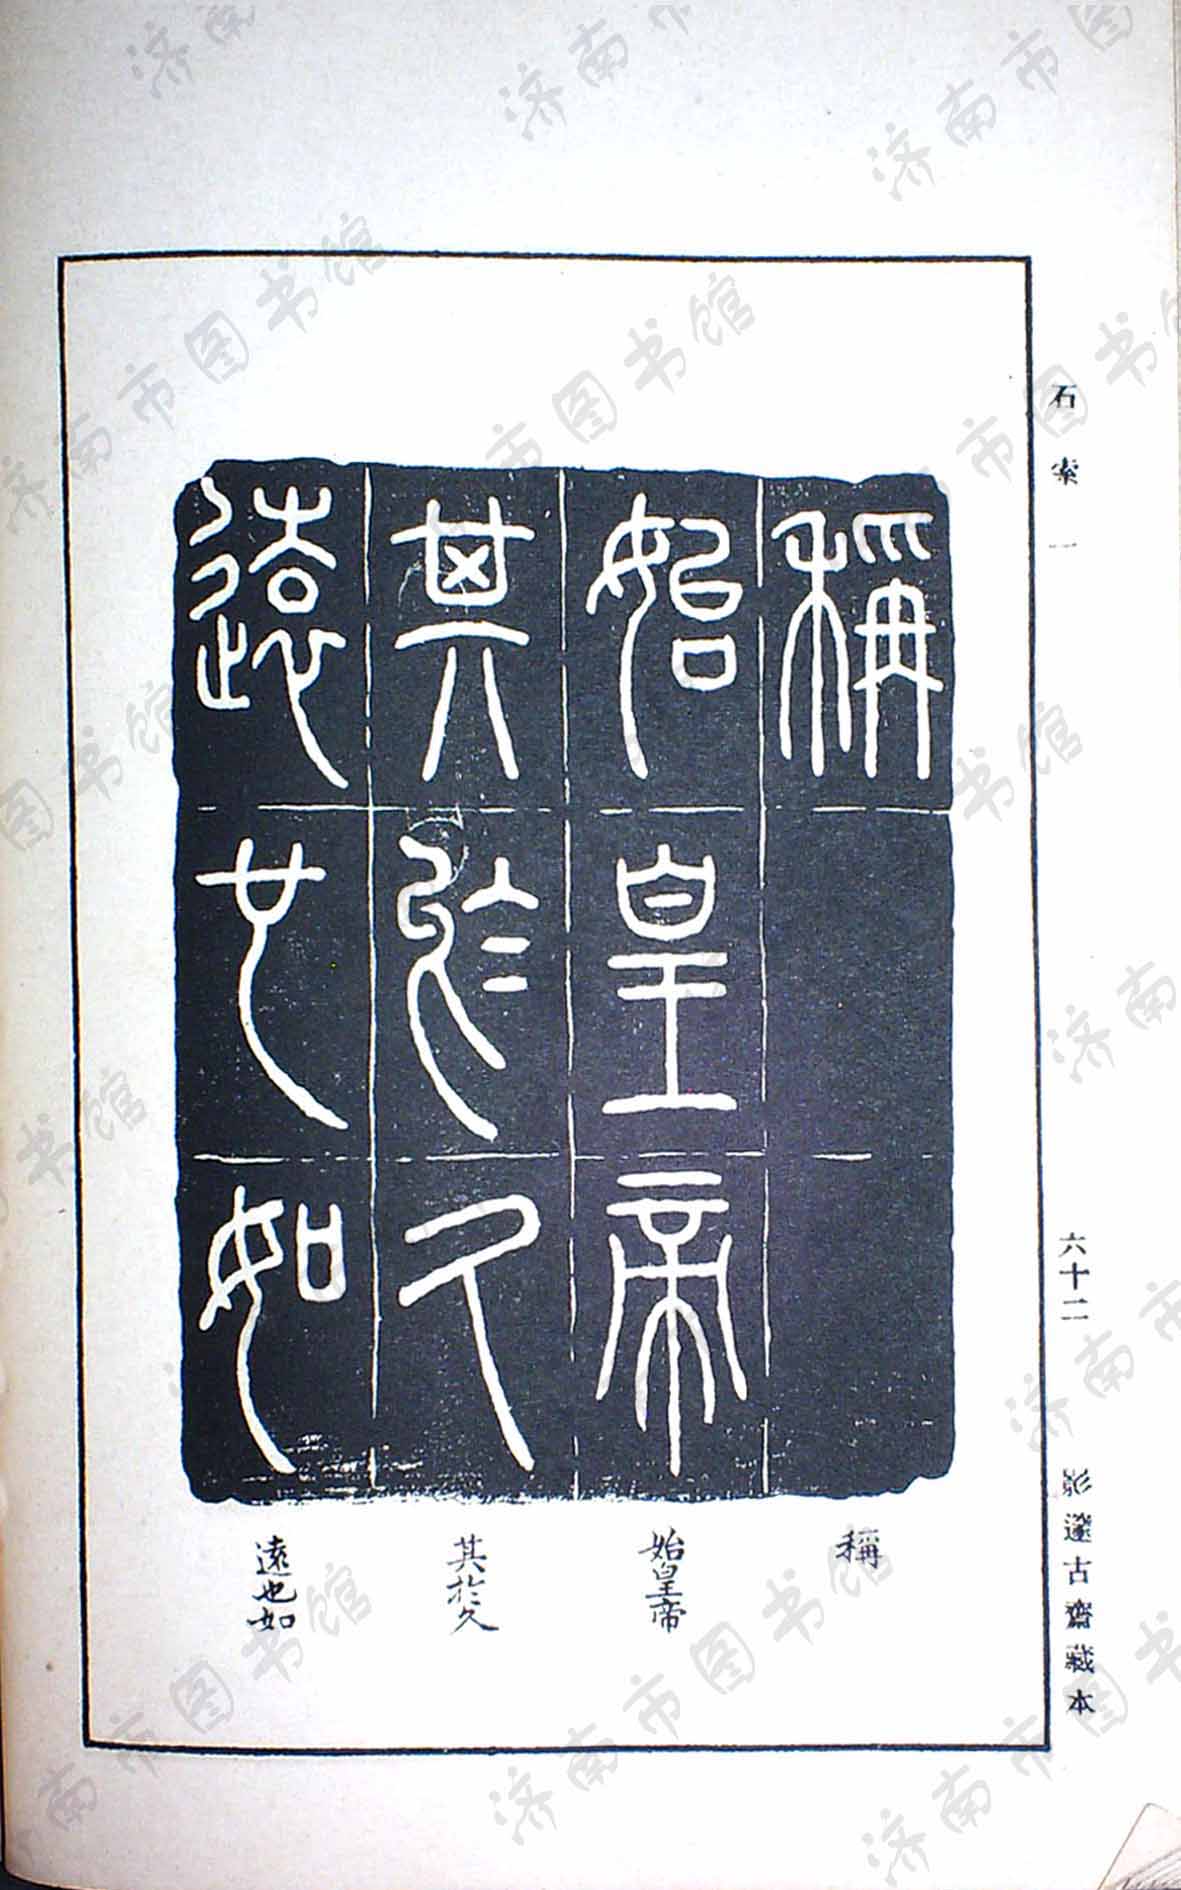 石索一 六十二 影邃古齋藏本
稱
始皇帝
其於久
遠也如
稱
始皇帝
其於久
遠也如
济南市图书馆